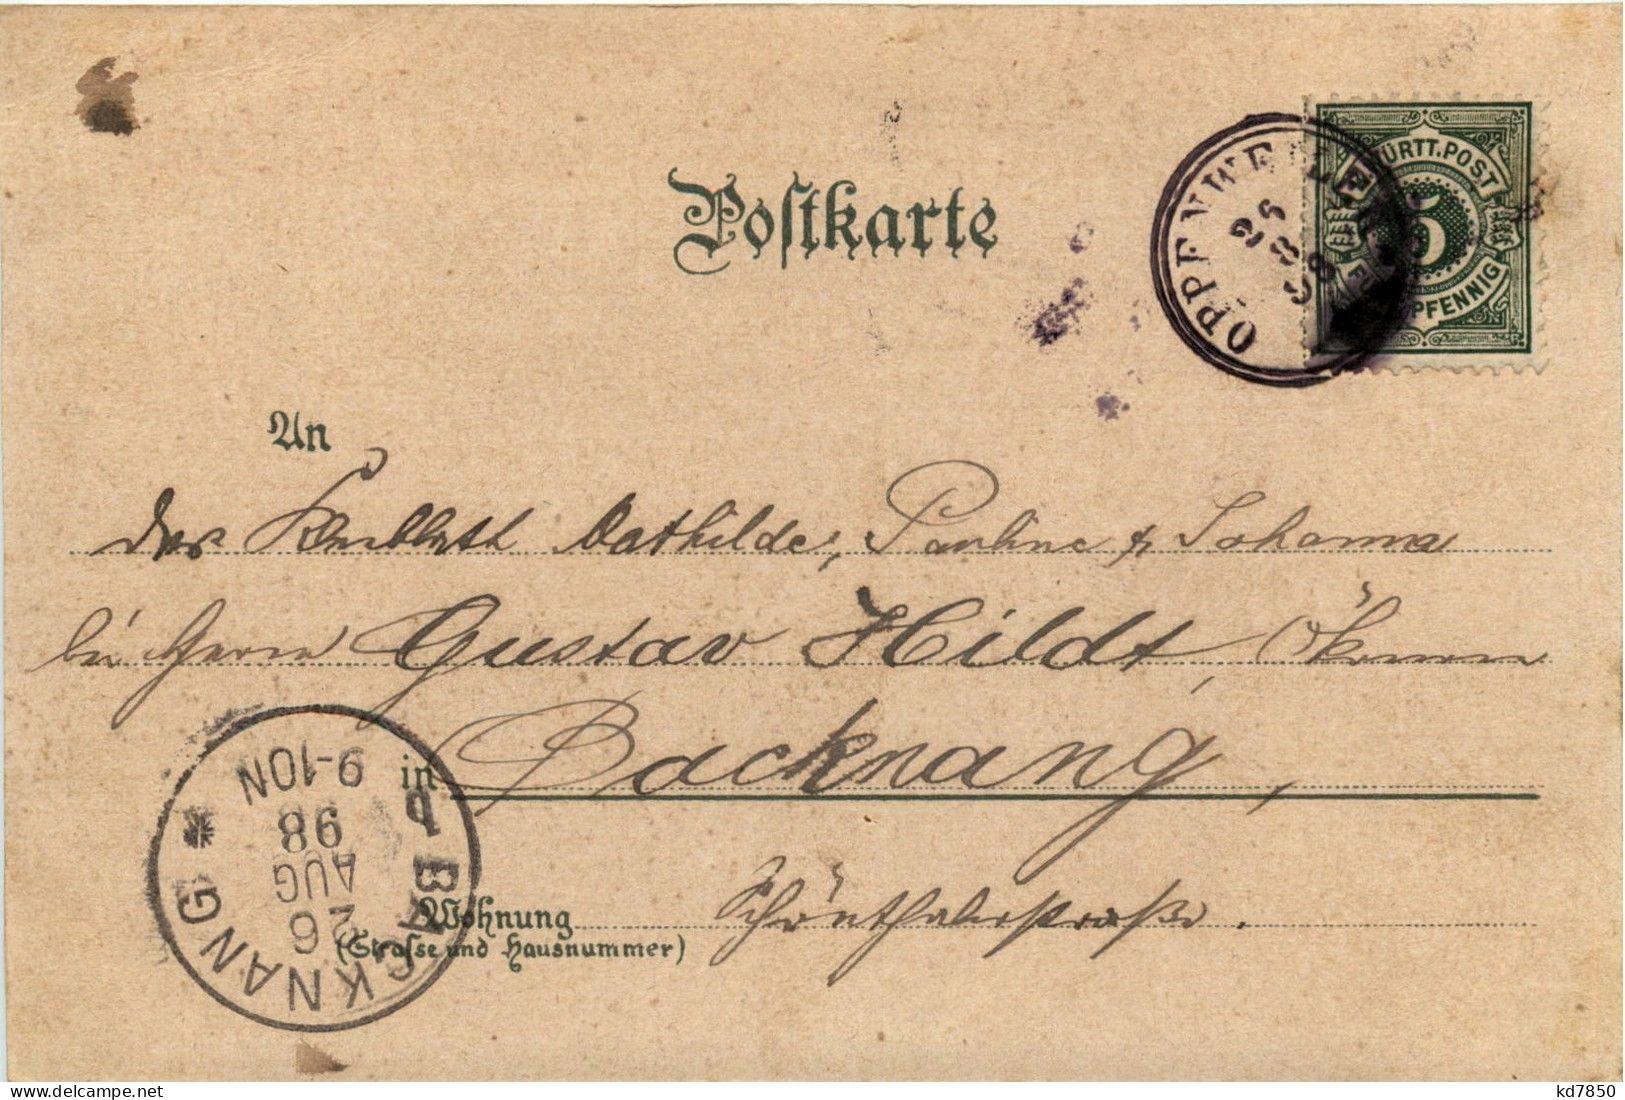 Postkarte
WÜRTT. POST
5
PFENNIG
OPPENWEILER
26
8
98
An
das Kleeblatt Mathilde, Pauline & Johanna
bei Herrn Gustav Hildt,
in Backnang,
Wohnung Schönthalerstraße.
(Strasse und Hausnummer)
BACKNANG
26
AUG
98
9-10N
kd7850